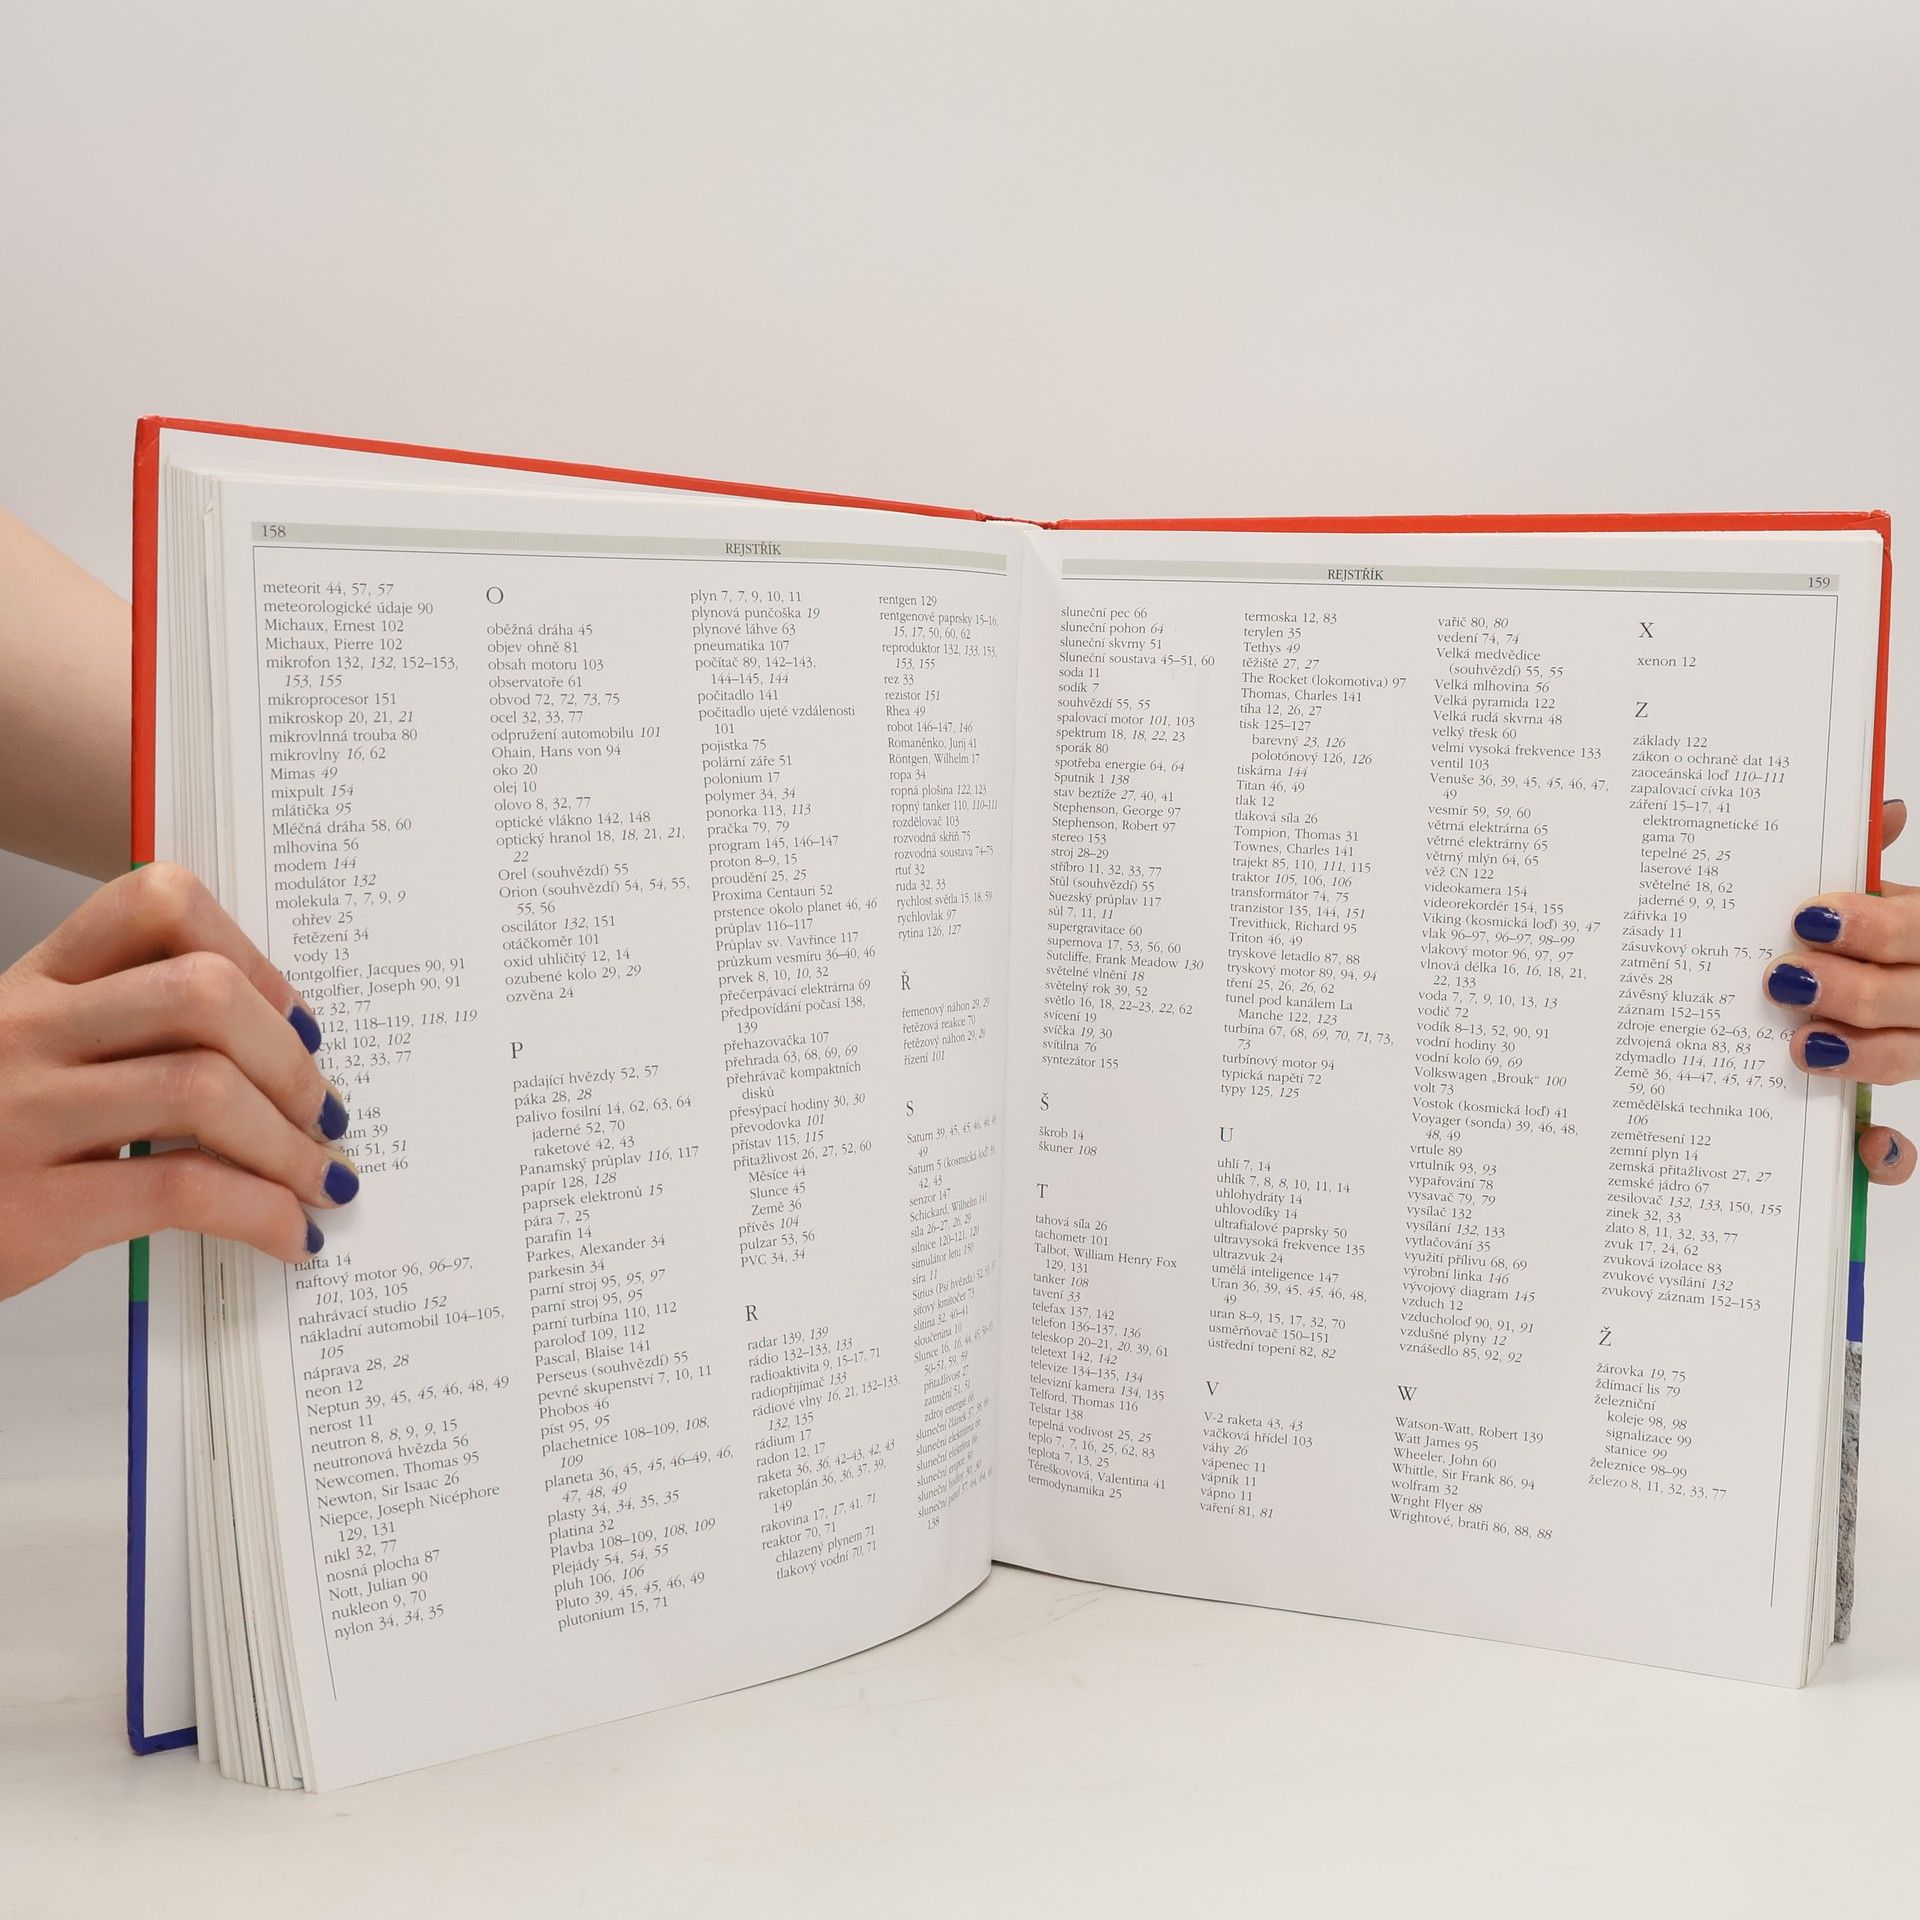 158
REJSTŘÍK
meteorit 44, 57, 57
meteorologické údaje 90
Michaux, Ernest 102
Michaux, Pierre 102
mikrofon 132, 132, 152–153,
153, 155
mikroprocesor 151
mikroskop 20, 21, 21
mikrovlnná trouba 80
mikrovlny 16, 62
Mimas 49
mixpult 154
mlátička 95
Mléčná dráha 58, 60
mlhovina 56
modem 144
modulátor 132
molekula 7, 7, 9, 9
ohřev 25
řetězení 34
vody 13
Montgolfier, Jacques 90, 91
ontgolfier, Joseph 90, 91
az 32, 77
112, 118–119, 118, 119
cykl 102, 102
11, 32, 33, 77
36, 44
148
um 39
ní 51, 51
anet 46
nafta 14
naftový motor 96, 96–97,
101, 103, 105
nahrávací studio 152
nákladní automobil 104–105,
105
náprava 28, 28
neon 12
Neptun 39, 45, 45, 46, 48, 49
nerost 11
neutron 8, 8, 9, 9, 15
neutronová hvězda 56
Newcomen, Thomas 95
Newton, Sir Isaac 26
Niepce, Joseph Nicéphore
129, 131
nikl 32, 77
nosná plocha 87
Nott, Julian 90
nukleon 9, 70
nylon 34, 34, 35
O
oběžná dráha 45
objev ohně 81
obsah motoru 103
observatoře 61
obvod 72, 72, 73, 75
ocel 32, 33, 77
odpružení automobilu 101
Ohain, Hans von 94
oko 20
olej 10
olovo 8, 32, 77
optické vlákno 142, 148
optický hranol 18, 18, 21, 21,
22
Orel (souhvězdí) 55
Orion (souhvězdí) 54, 54, 55,
55, 56
oscilátor 132, 151
otáčkoměr 101
oxid uhličitý 12, 14
ozubené kolo 29, 29
ozvěna 24
P
padající hvězdy 52, 57
páka 28, 28
palivo fosilní 14, 62, 63, 64
jaderné 52, 70
raketové 42, 43
Panamský průplav 116, 117
papír 128, 128
paprsek elektronů 15
pára 7, 25
parafín 14
Parkes, Alexander 34
parkesin 34
parní stroj 95, 95, 97
parní stroj 95, 95
parní turbína 110, 112
paroloď 109, 112
Pascal, Blaise 141
Perseus (souhvězdí) 55
pevné skupenství 7, 10, 11
Phobos 46
píst 95, 95
plachetnice 108–109, 108,
109
planeta 36, 45, 45, 46–49, 46,
47, 48, 49
plasty 34, 34, 35, 35
platina 32
Plavba 108–109, 108, 109
Plejády 54, 54, 55
pluh 106, 106
Pluto 39, 45, 45, 46, 49
plutonium 15, 71
plyn 7, 7, 9, 10, 11
plynová punčoška 19
plynové láhve 63
pneumatika 107
počítač 89, 142–143,
144–145, 144
počitadlo 141
počitadlo ujeté vzdálenosti
101
pojistka 75
polární záře 51
polonium 17
polymer 34, 34
ponorka 113, 113
pračka 79, 79
program 145, 146–147
proton 8–9, 15
proudění 25, 25
Proxima Centauri 52
prstence okolo planet 46, 46
průplav 116–117
Průplav sv. Vavřince 117
průzkum vesmíru 36–40, 46
prvek 8, 10, 10, 32
přečerpávací elektrárna 69
předpovídání počasí 138,
139
přehazovačka 107
přehrada 63, 68, 69, 69
přehrávač kompaktních
disků
přesýpací hodiny 30, 30
převodovka 101
přístav 115, 115
přitažlivost 26, 27, 52, 60
Měsíce 44
Slunce 45
Země 36
přívěs 104
pulzar 53, 56
PVC 34, 34
R
radar 139, 139
rádio 132–133, 133
radioaktivita 9, 15–17, 71
radiopřijímač 133
rádiové vlny 16, 21, 132–133,
132, 135
rádium 17
radon 12, 17
raketa 36, 36, 42–43, 42, 43
raketoplán 36, 36, 37, 39,
149
rakovina 17, 17, 41, 71
reaktor 70, 71
chlazený plynem 71
tlakový vodní 70, 71
rentgen 129
rentgenové paprsky 15–16,
15, 17, 50, 60, 62
reproduktor 132, 133, 153,
153, 155
rez 33
rezistor 151
Rhea 49
robot 146–147, 146
Romaněnko, Jurij 41
Röntgen, Wilhelm 17
ropa 34
ropná plošina 122, 123
ropný tanker 110, 110–111
rozdělovač 103
rozvodná skříň 75
rozvodná soustava 74–75
rtuť 32
ruda 32, 33
rychlost světla 15, 18, 59
rychlovlak 97
rytina 126, 127
Ř
řemenový náhon 29, 29
řetězová reakce 70
řetězový náhon 29, 29
řízení 101
S
Saturn 39, 45, 45, 46, 48,
49
Saturn 5 (kosmická loď)
42, 43
senzor 147
Schickard, Wilhelm 141
síla 26–27, 26, 29
silnice 120–121, 120
simulátor letu 150
síra 11
Sírius (Psí hvězda) 52,
síťový kmitočet 73
slitina 32, 40–41
sloučenina 10
Slunce 16, 16, 44, 45,
50–51, 59, 59
přitažlivost 27
zatmění 51, 51
zdroj energie 66
sluneční článek
sluneční elektrárna 66
sluneční
sluneční erupce 50
sluneční hodiny 30, 30
sluneční panel
138
REJSTŘÍK
159
sluneční pec 66
sluneční pohon 64
sluneční skvrny 51
Sluneční soustava 45–51, 60
soda 11
sodík 7
souhvězdí 55, 55
spalovací motor 101, 103
spektrum 18, 18, 22, 23
sporák 80
spotřeba energie 64, 64
Sputnik 1 138
stav beztíže 27, 40, 41
Stephenson, George 97
Stephenson, Robert 97
stereo 153
stroj 28–29
stříbro 11, 32, 33, 77
Stůl (souhvězdí) 55
Suezský průplav 117
sůl 7, 11, 11
supergravitace 60
supernova 17, 53, 56, 60
Sutcliffe, Frank Meadow 130
světelné vlnění 18
světelný rok 39, 52
světlo 16, 18, 22–23, 22, 62
svícení 19
svíčka 19, 30
svítilna 76
syntezátor 155
Š
škrob 14
škuner 108
T
tahová síla 26
tachometr 101
Talbot, William Henry Fox
129, 131
tanker 108
tavení 33
telefax 137, 142
telefon 136–137, 136
teleskop 20–21, 20, 39, 61
teletext 142, 142
televize 134–135, 134
televizní kamera 134, 135
Telford, Thomas 116
Telstar 138
tepelná vodivost 25, 25
teplo 7, 7, 16, 25, 62, 83
teplota 7, 13, 25
Těreškovová, Valentina 41
termodynamika 25
termoska 12, 83
terylen 35
Tethys 49
těžiště 27, 27
The Rocket (lokomotiva) 97
Thomas, Charles 141
tíha 12, 26, 27
tisk 125–127
barevný 23, 126
polotónový 126, 126
tiskárna 144
Titan 46, 49
tlak 12
tlaková síla 26
Tompion, Thomas 31
Townes, Charles 141
trajekt 85, 110, 111, 115
traktor 105, 106, 106
transformátor 74, 75
tranzistor 135, 144, 151
Trevithick, Richard 95
Triton 46, 49
tryskové letadlo 87, 88
tryskový motor 89, 94, 94
tření 25, 26, 26, 62
tunel pod kanálem La
Manche 122, 123
turbína 67, 68, 69, 70, 71, 73,
73
turbínový motor 94
typická napětí 72
typy 125, 125
U
uhlí 7, 14
uhlík 7, 8, 8, 10, 11, 14
uhlohydráty 14
uhlovodíky 14
ultrafialové paprsky 50
ultravysoká frekvence 135
ultrazvuk 24
umělá inteligence 147
Uran 36, 39, 45, 45, 46, 48,
49
uran 8–9, 15, 17, 32, 70
usměrňovač 150–151
ústřední topení 82, 82
V
V-2 raketa 43, 43
vačková hřídel 103
váhy 26
vápenec 11
vápník 11
vápno 11
vaření 81, 81
vařič 80, 80
vedení 74, 74
Velká medvědice
(souhvězdí) 55, 55
Velká mlhovina 56
Velká pyramida 122
Velká rudá skvrna 48
velký třesk 60
velmi vysoká frekvence 133
ventil 103
Venuše 36, 39, 45, 45, 46, 47,
49
vesmír 59, 59, 60
větrná elektrárna 65
větrné elektrárny 65
větrný mlýn 64, 65
věž CN 122
videokamera 154
videorekordér 154, 155
Viking (kosmická loď) 39, 47
vlak 96–97, 96–97, 98–99
vlakový motor 96, 97, 97
vlnová délka 16, 16, 18, 21,
22, 133
voda 7, 7, 9, 10, 13, 13
vodič 72
vodík 8–13, 52, 90, 91
vodní hodiny 30
vodní kolo 69, 69
Volkswagen „Brouk“ 100
volt 73
Vostok (kosmická loď) 41
Voyager (sonda) 39, 46, 48,
48, 49
vrtule 89
vrtulník 93, 93
vypařování 78
vysavač 79, 79
vysílač 132
vysílání 132, 133
vytlačování 35
využití přílivu 68, 69
výrobní linka 146
vývojový diagram 145
vzduch 12
vzducholoď 90, 91, 91
vzdušné plyny 12
vznášedlo 85, 92, 92
W
Watson-Watt, Robert 139
Watt James 95
Wheeler, John 60
Whittle, Sir Frank 86, 94
wolfram 32
Wright Flyer 88
Wrightové, bratři 86, 88, 88
X
xenon 12
Z
základy 122
zákon o ochraně dat 143
zaoceánská loď 110–111
zapalovací cívka 103
záření 15–17, 41
elektromagnetické 16
gama 70
tepelné 25, 25
laserové 148
světelné 18, 62
jaderné 9, 9, 15
zářivka 19
zásady 11
zásuvkový okruh 75, 75
zatmění 51, 51
závěs 28
závěsný kluzák 87
záznam 152–155
zdroje energie 62–63, 62, 63
zdvojená okna 83, 83
zdymadlo 114, 116, 117
Země 36, 44–47, 45, 47, 59,
59, 60
zemědělská technika 106,
106
zemětřesení 122
zemní plyn 14
zemská přitažlivost 27, 27
zemské jádro 67
zesilovač 132, 133, 150, 155
zinek 32, 33
zlato 8, 11, 32, 33, 77
zvuk 17, 24, 62
zvuková izolace 83
zvukové vysílání 132
zvukový záznam 152–153
Ž
žárovka 19, 75
ždímací lis 79
železniční
koleje 98, 98
signalizace 99
stanice 99
železnice 98–99
železo 8, 11, 32, 33, 77